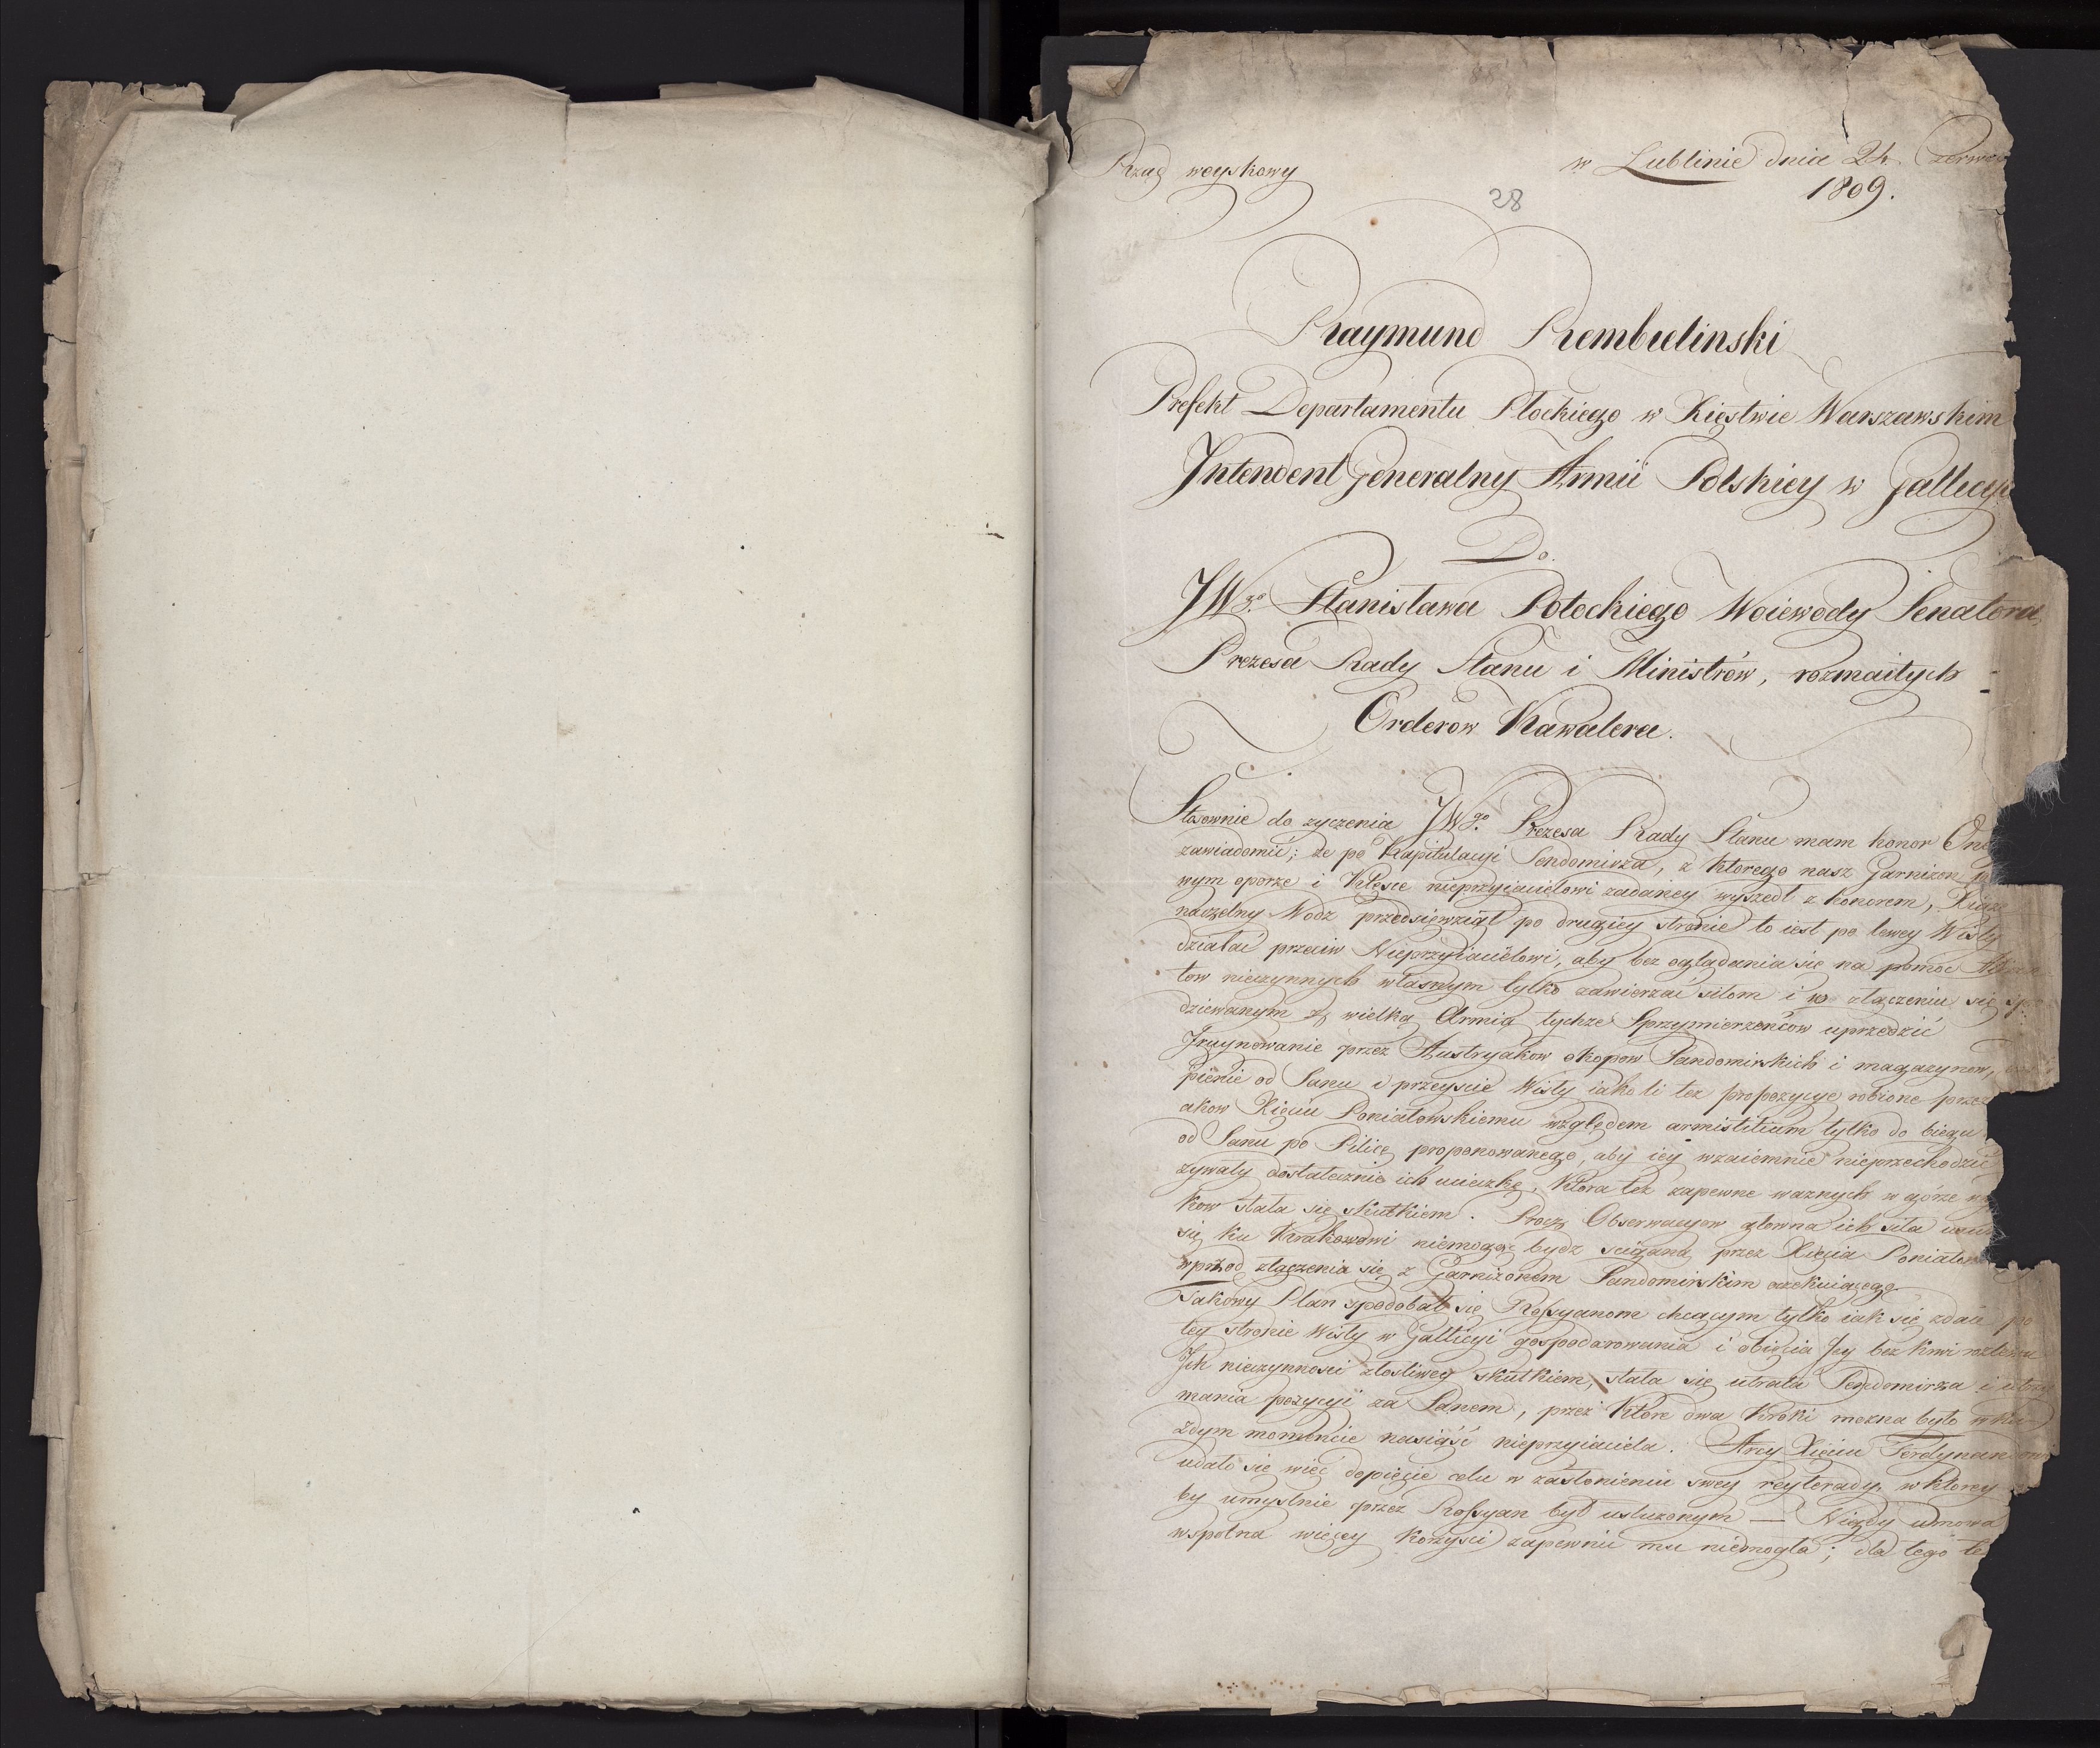 Rząd woyskowy
w Lublinie dnia 24. Czerwca
1809.
28
Raymund Rembielinski
Prefekt Departamentu Płockiego w Xięstwie Warszawskim
Intendent Generalny Armii Polskiey w Gallicyi
Do.
JWgo. Stanisława Potockiego Woiewody Senatora,
Prezesa Rady Stanu i Ministrów, rozmaitych -
Orderow Kawalera.
Stosownie do zyczenia JWgo. Prezesa Rady Stanu mam honor One
zawiadomić; że po Kapitulacyi Sendomirza, z ktorego nasz Garnizon
wym oporze i Klęsce nieprzyiacielowi zadaney wyszedł z honorem, Xiąże
naczelny Wodz przedsiewziął po drugiey stronie to iest po lewey Wisły
działać przeciw Nieprzyiacielowi, aby bez oglądania się na pomoc
tow nieczynnych własnym tylko zawierzać siłom i w złączeniu się spo
dziewanym z wielką Armią tychże Sprzymierzeńcow uprzedzić
Zruynowanie przez Austryakow okopow Sandomirskich i magazynow,
pienie od Sanu i przeyscie Wisły iako li tez propozycye robione przez
akow Xięciu Poniatowskiemu względem armistitium tylko do biegu
od Sanu po Pilicę proponowanego, aby iey wzaiemnie nieprzechodzić
zywały dostatecznie ich ucieczkę, Ktora tez zapewne waznych w górze
kow stała się skutkiem. Procz Obserwacyow głowna ich siła
się ku Krakowowi niemogąc bydz scigana przez Xięcia Poniatow
wprzod złączenia się z Garnizonem Sandomirskim oczekuiącego
Takowy Plan spodobał się Rossyanom chcącym tylko iak się zdaie po
tey stronie Wisły w Gallicyi gospodarowania i obięcia Jey bez krwi rozlewu
Ich nieczynnosci złosliwey skutkiem, stała się utrata Sendomirza i utrzy
mania pozycyi za Sanem, przez Ktore dwa Kroki mozna było w ka-
zdym momencie nasiąść nieprzyiaciela. Arcy Xięciu Ferdynandowi
udało się więc dopięcie celu w zasłonieniu swey reyterady, w ktorey
by umyslnie przez Rossyan był usłuzonym — Nigdy umowa
wspolna więcey korzysci zapewnić mu niemogła; dla tego te